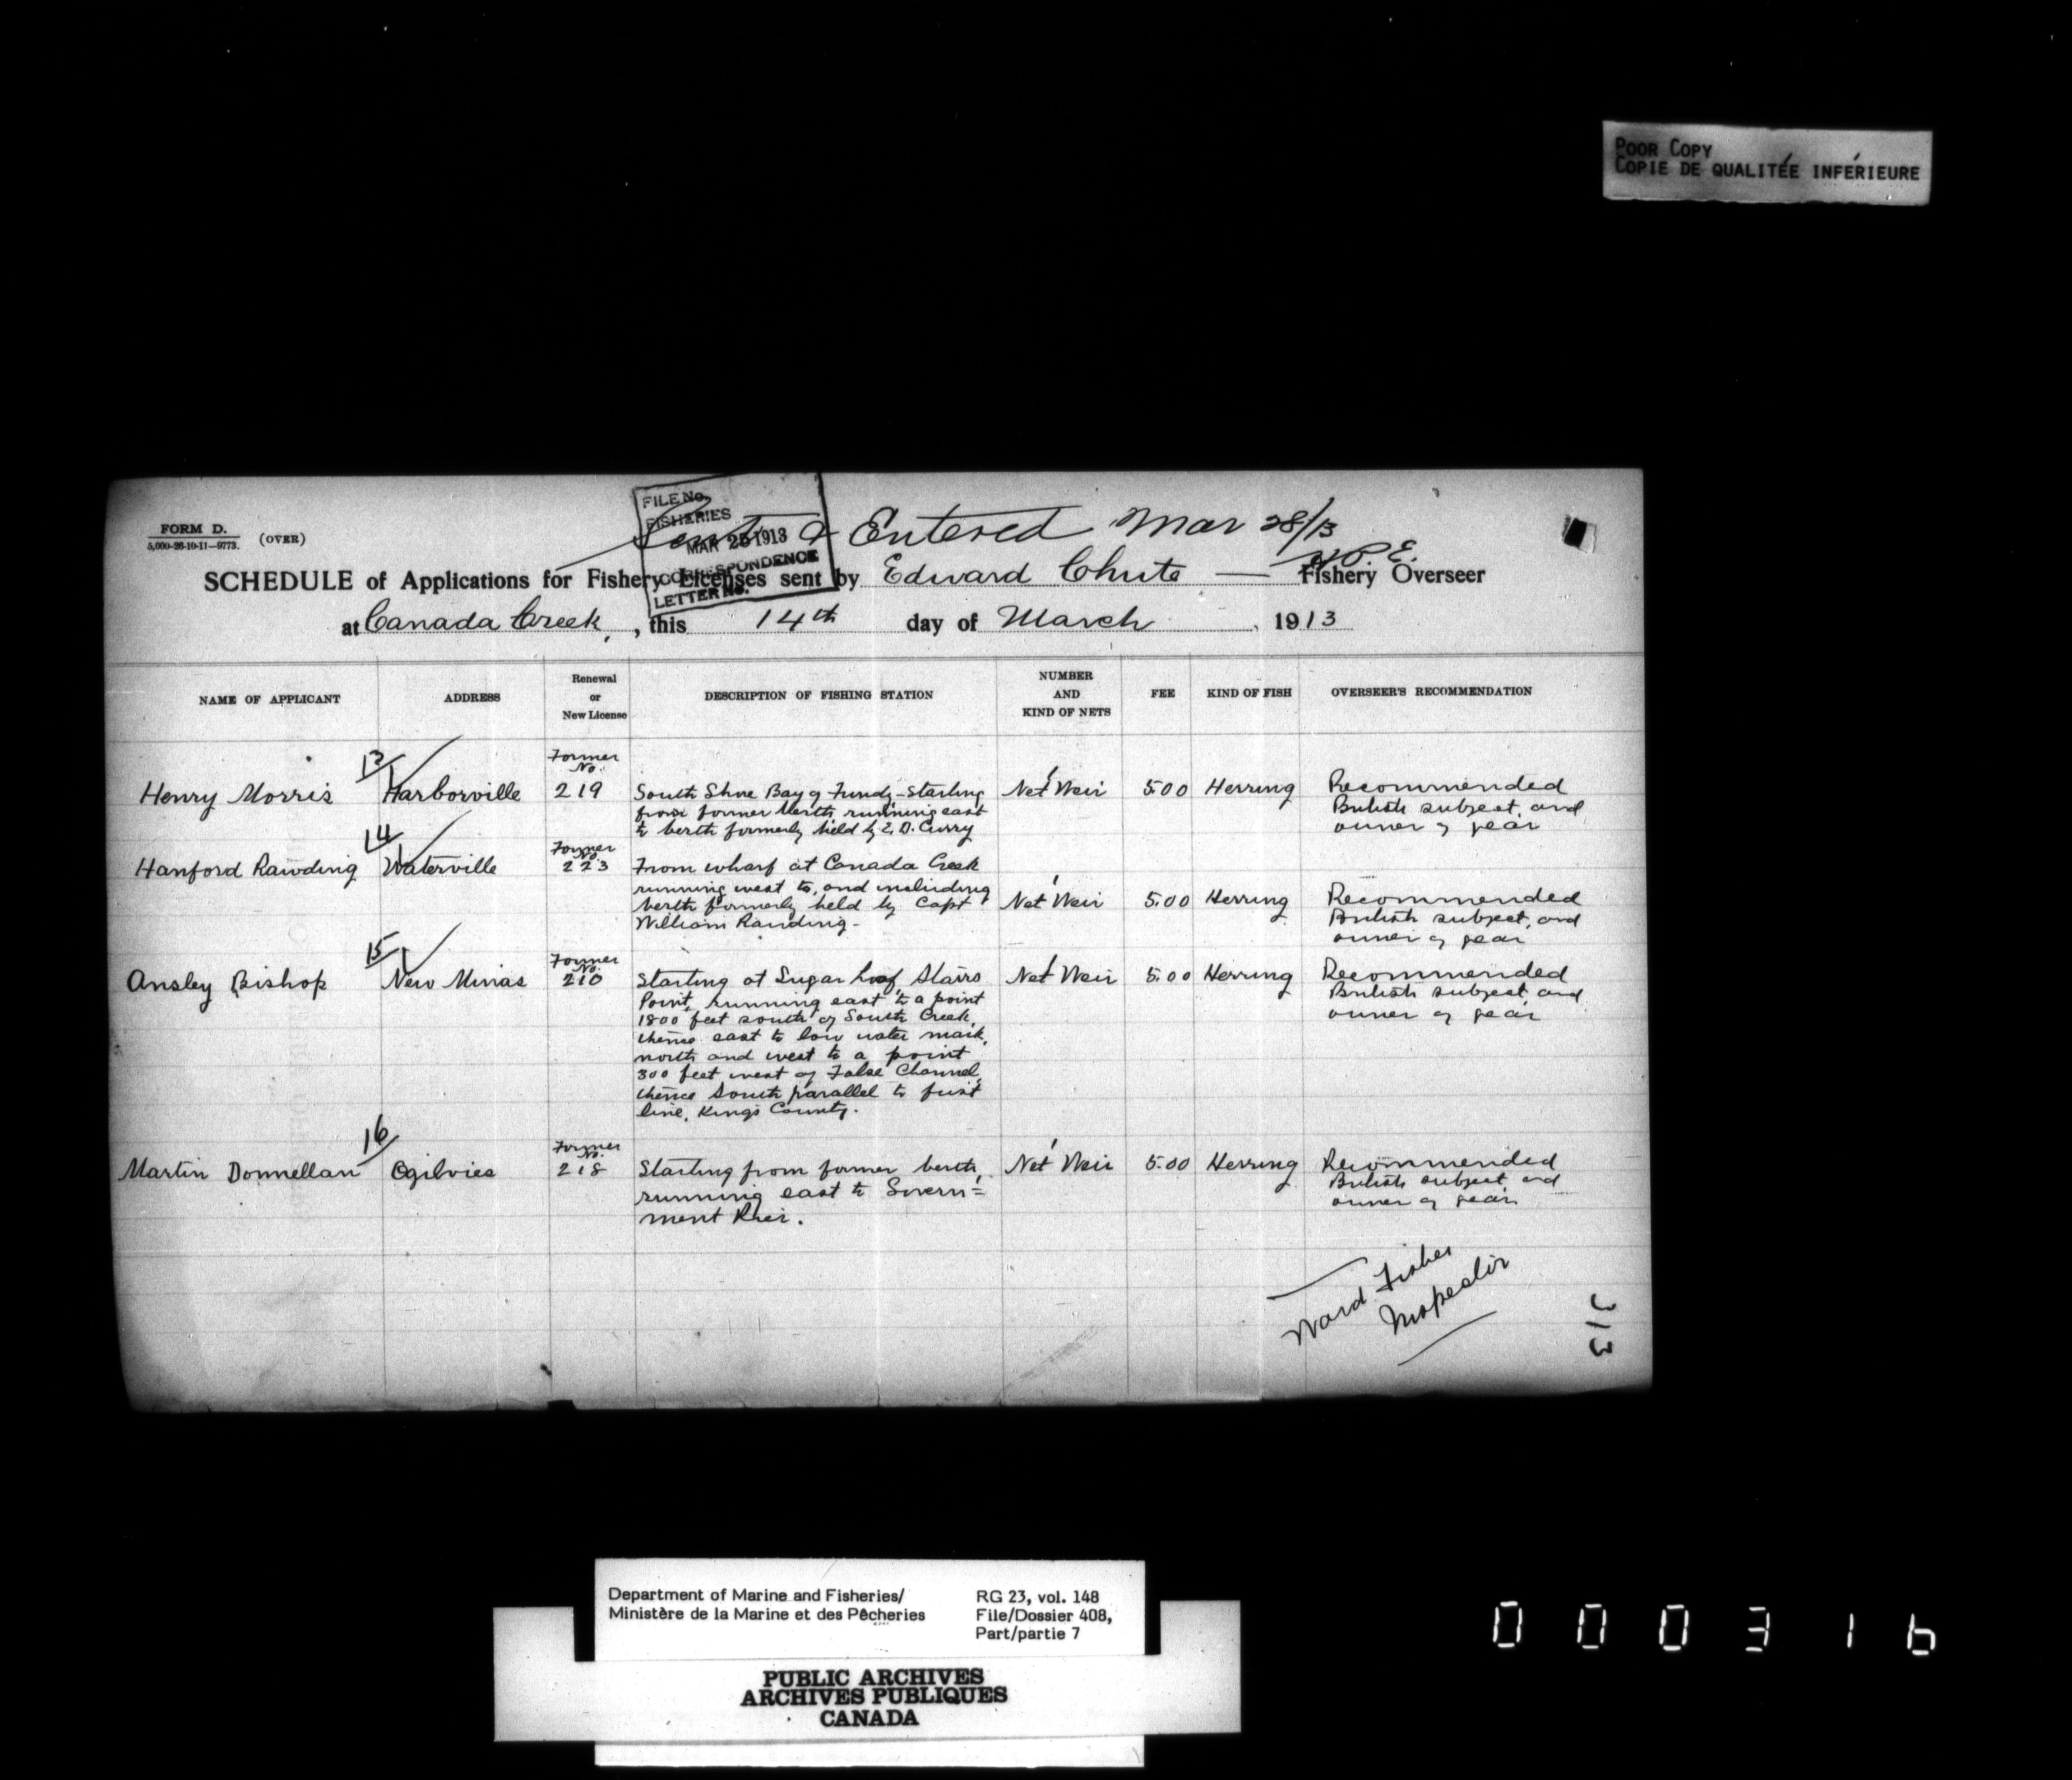 POOR COPY
COPIE DE QUALITÉE INFÉRIEURE
FORM D.
5,000-26-10-11—9773.
(OVER)
FILE No.
FISHERIES
MAR 25 1913
CORRESPONDENCE
LETTER No.
Sent & Entered Mar 28/13
SCHEDULE of Applications for Fishery Licenses sent by Edward Chute — Fishery Overseer
at Canada Creek, this 14th day of March 1913
NAME OF APPLICANT
ADDRESS
Renewal
or
New License
DESCRIPTION OF FISHING STATION
NUMBER
AND
KIND OF NETS
FEE
KIND OF FISH
OVERSEER'S RECOMMENDATION
13
Henry Morris
Harborville
Former
No.
219
South Shore Bay of Fundy - starting
from former berth running east
to berth formerly held by E. D. Curry
1
Net Weir
5.00
Herring
Recommended
British subject, and
owner of gear
14
Hanford Rawding
Waterville
Former
No.
223
From wharf at Canada Creek
running west to, and including
berth formerly held by Capt
William Rawding.
1
Net Weir
5.00
Herring
Recommended
British subject, and
owner of gear
15
Ansley Bishop
New Minas
Former
No.
210
Starting at Sugar Loaf, Stairs
Point, running east to a point
1800 feet south of South Creek,
thence east to low water mark,
north and west to a point
300 feet west of False Channel,
thence South parallel to first
line, Kings County.
1
Net Weir
5.00
Herring
Recommended
British subject, and
owner of gear
16
Martin Donnellan
Ogilvies
Former
No.
218
Starting from former berth,
running east to Govern=
ment Pier.
1
Net Weir
5.00
Herring
Recommended
British subject and
owner of gear
Ward Fisher
Inspector
313
Department of Marine and Fisheries/
Ministère de la Marine et des Pêcheries
RG 23, vol. 148
File/Dossier 408,
Part/partie 7
PUBLIC ARCHIVES
ARCHIVES PUBLIQUES
CANADA
000316